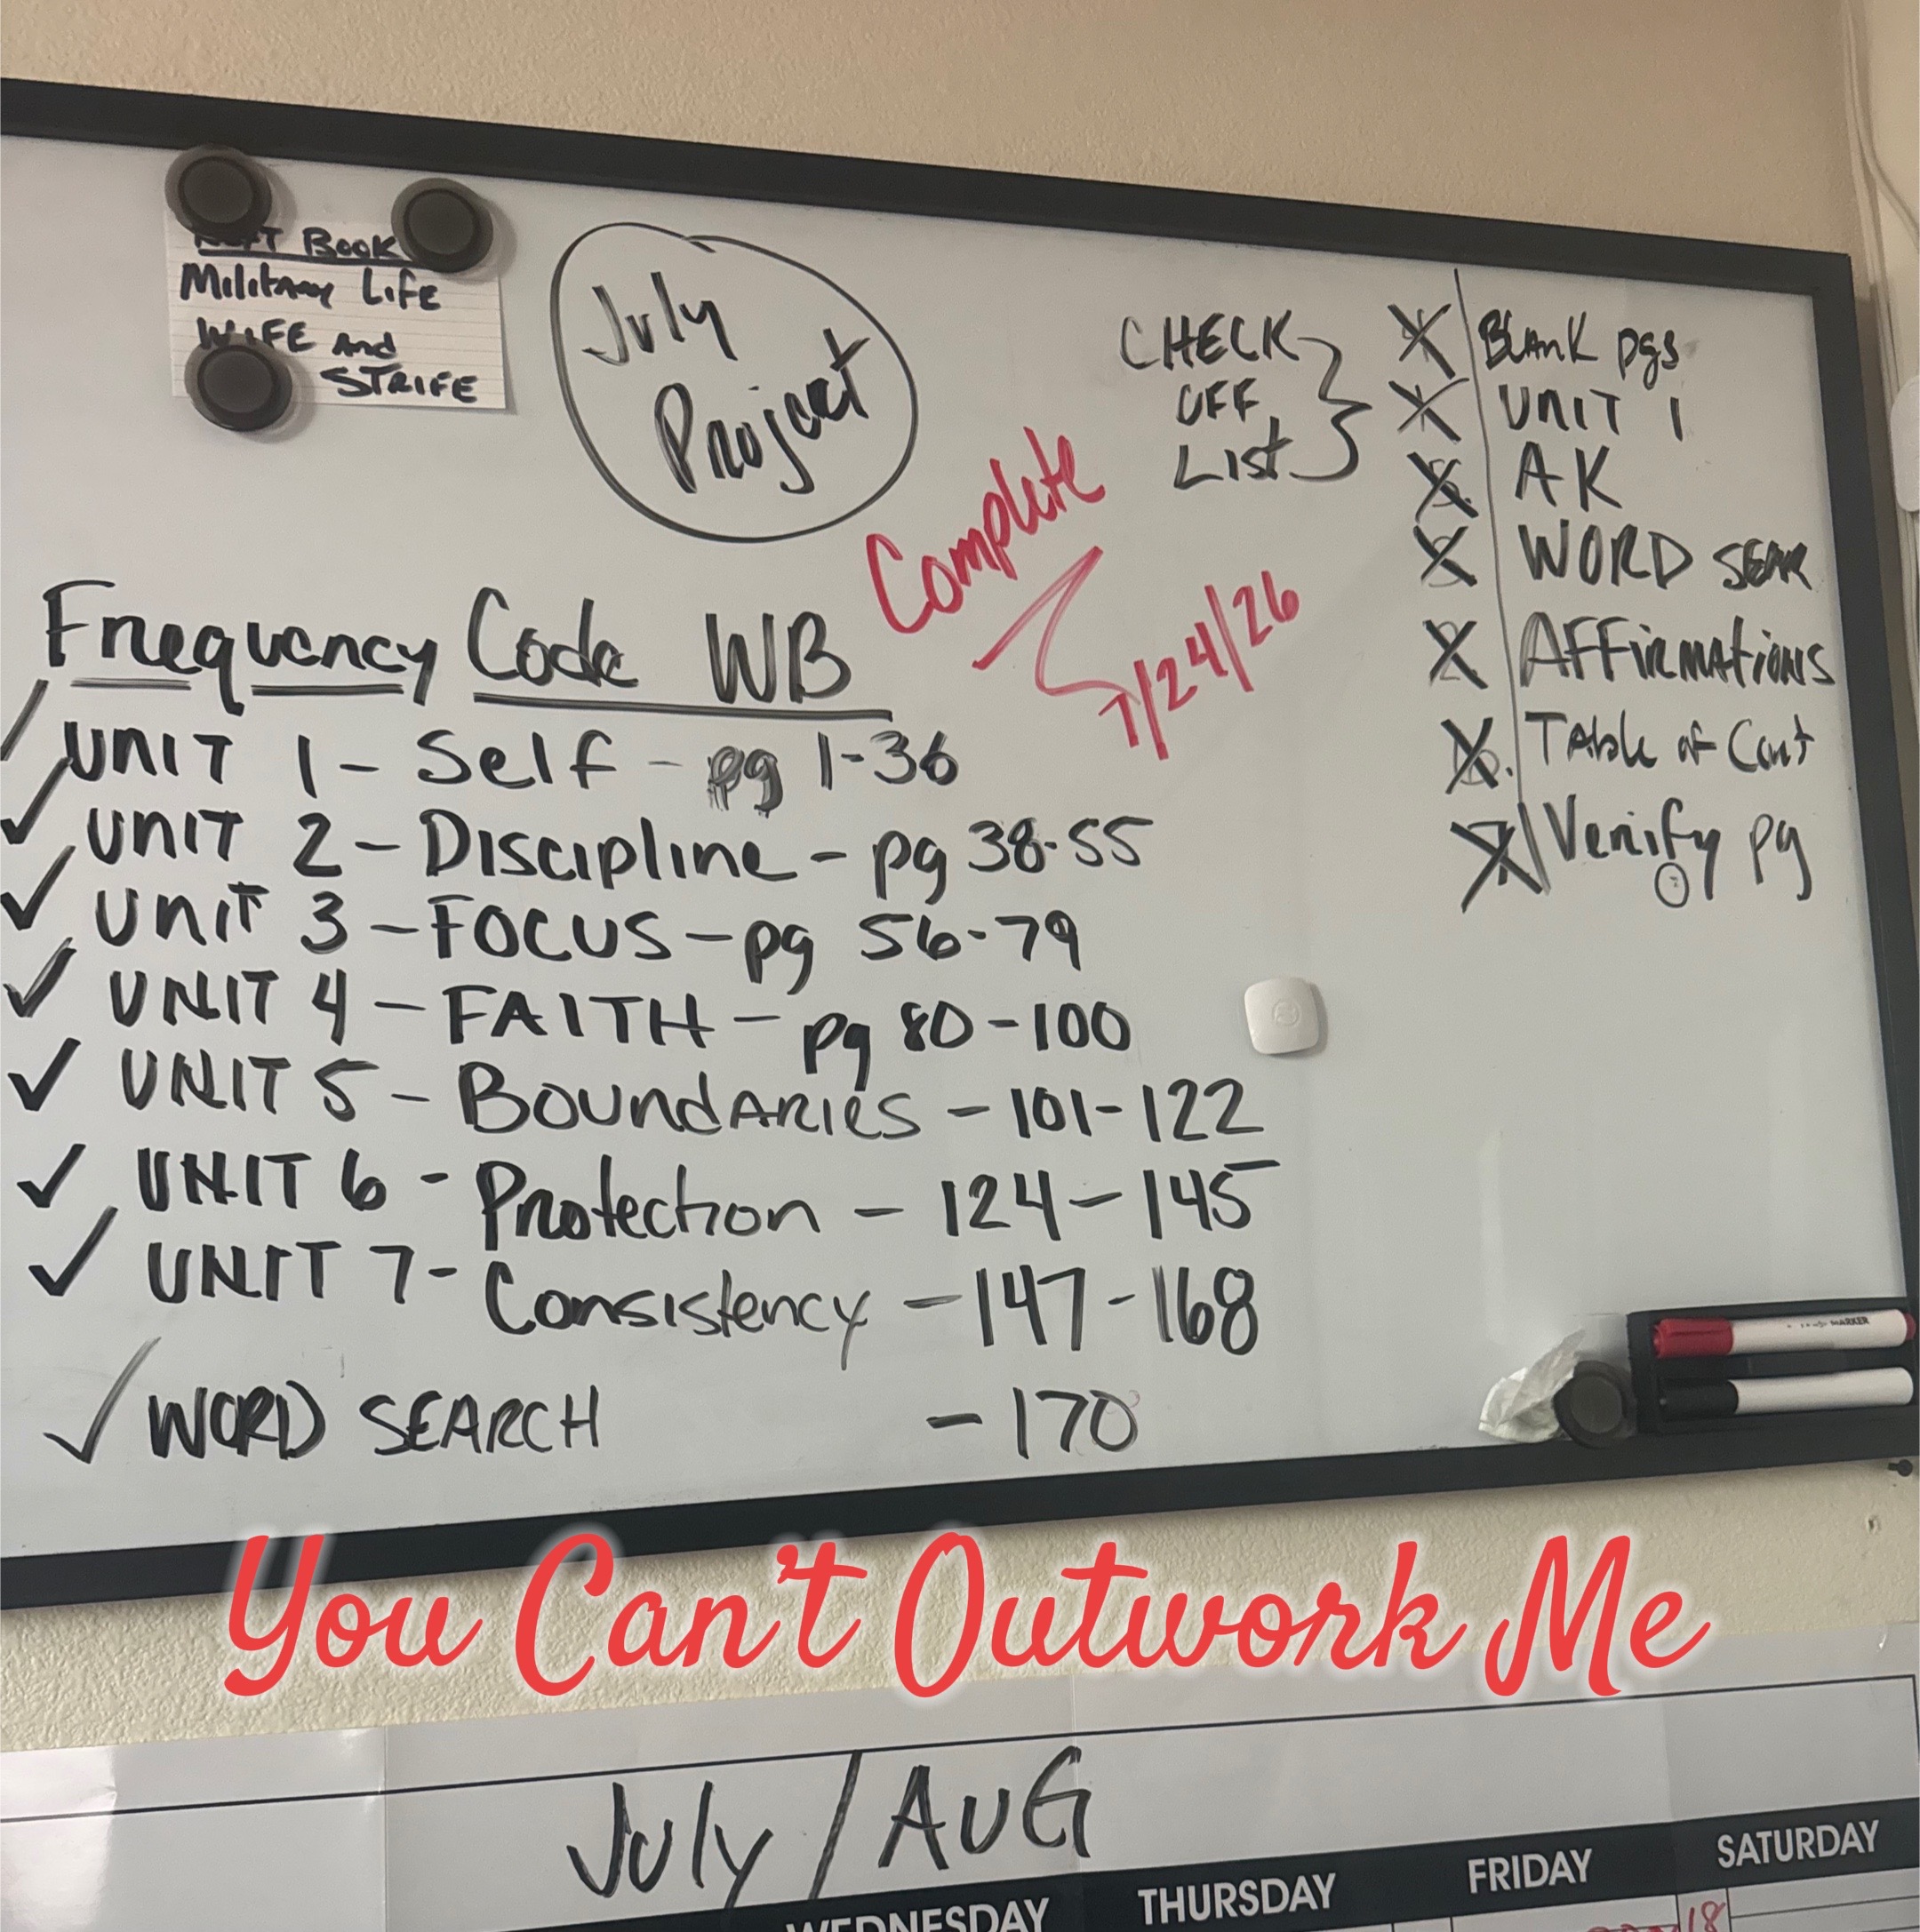 Book
Military Life
WIFE And
STRIFE
July
Project
Complete
7/24/26
CHECK
OFF
List
X BLANK pgs
X UNIT 1
X AK
X WORD SEAR
X AFFirmATiONS
X. TAble of Cont
X Verify pg
Frequency Code WB
✓ UNIT 1 - Self - pg 1-36
✓ UNIT 2 - Discipline - pg 38-55
✓ UNIT 3 - FOCUS - pg 56-79
✓ UNIT 4 - FAITH - pg 80-100
✓ UNIT 5 - BoundARies - 101-122
✓ UNIT 6 - Protection - 124-145
✓ UNIT 7 - Consistency - 147-168
✓ WORD SEARCH - 170
You Can't Outwork Me
July / AUG
WEDNESDAY THURSDAY FRIDAY SATURDAY
18
MARKER